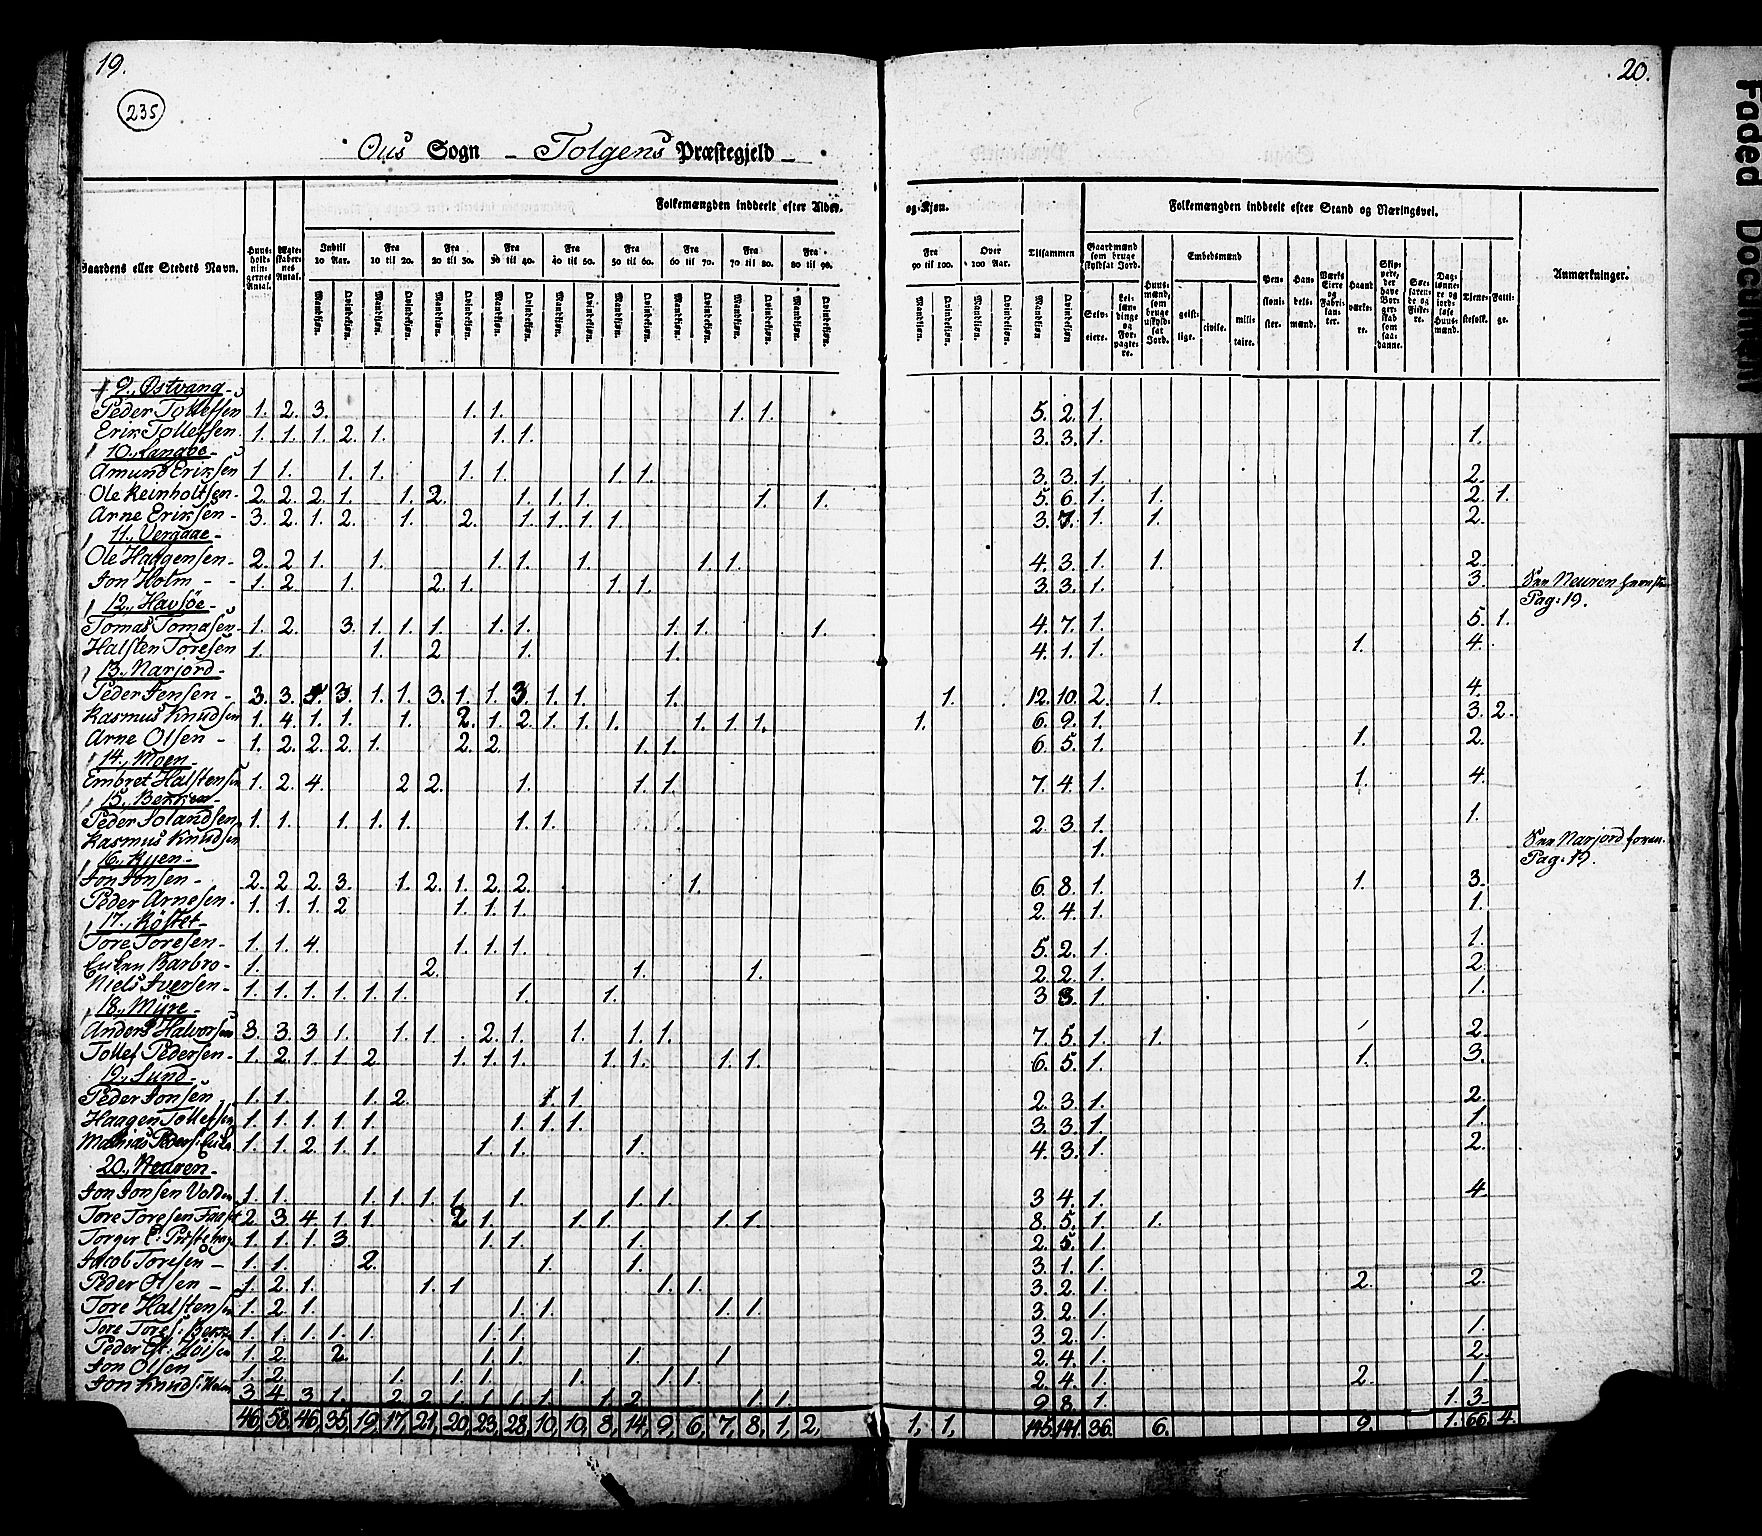 19.
20.
235
Ous Sogn - Tolgens Præstegjeld -
Folkemængden inddeelt efter Alder og Kjøn.
Folkemængden inddeelt efter Stand og Næringsvei.
Gaardens eller Stedets Navn.
Huusholdningernes Antal.
Ægteskabernes Antal.
Indtil 10 Aar.
Fra 10 til 20.
Fra 20 til 30.
Fra 30 til 40.
Fra 40 til 50.
Fra 50 til 60.
Fra 60 til 70.
Fra 70 til 80.
Fra 80 til 90.
Fra 90 til 100.
Over 100 Aar.
Tilsammen
Mandkjøn. Qvindekjøn.
Gaardmænd som bruge skyldsat Jord.
Selveiere.
Leilændinge og Forpagtere.
Huusmænd, som bruge uskyldsat Jord.
Embedsmænd
geistlige.
civile.
militaire.
Pensionister.
Handelsmænd.
Værkseiere og Fabrikanter.
Haandværkere.
Skippere, der have Borgerskab som saadanne.
Søefarende og Fiskere.
Daglønnere og jordløse Huusmænd.
Tjenestefolk.
Fattige.
Anmærkninger.
9., Østvang -
Peder Tollefsen 1. 2. 3. 1. 1. 1. 1. 5. 2. 1.
Erik Tollefsen. 1. 1. 1. 2. 1. 1. 1. 3. 3. 1. 1.
10., Langøe -
Amund Eriksen 1. 1. 1. 1. 1. 1. 1. 1. 3. 3. 1. 2.
Ole Reinholtsen - 2. 2. 2. 1. 1. 2. 1. 1. 1. 1. 1. 5. 6. 1. 1. 2. 1.
Arne Eriksen - 3. 2. 1. 2. 1. 2. 1. 1. 1. 1. 3. 7. 1. 1. 2.
11., Vergaae -
Ole Haagensen - 2. 2. 1. 1. 1. 1. 1. 1. 1. 4. 3. 1. 1. 2.
Jon Holm - - 1. 2. 1. 2. 1. 1. 1. 3. 3. 1. 3. Neuren Pag: 19.
12., Havsöe -
Tomas Tomasen - 1. 2. 3. 1. 1. 1. 1. 1. 1. 1. 1. 4. 7. 1. 5. 1.
Halsten Toresen 1. 1. 2 1. 1. 4. 1. 1. 1. 4.
13., Narjord -
Peder Jensen - 3. 3. 4. 3. 1. 1. 3. 1. 1. 3. 1. 1. 1. 1. 12. 10. 2. 1. 4.
Rasmus Knudsen 1. 4. 1. 1. 1. 2. 1. 2. 1. 1. 1. 1. 1. 1. 1. 6. 9. 1. 3. 2.
Arne Olsen - 1. 2. 2. 2. 1. 2. 2. 1. 1. 6. 5. 1. 1. 2.
14., Moen -
Embret Halstensen 1. 2. 4. 2 2. 1. 1. 1. 7. 4. 1. 1. 4.
15., Bekken -
Peder Jolandsen 1. 1. 1. 1. 1. 1. 1. 2. 3. 1. 1.
Rasmus Knudsen 1. Narjord foran. Pag: 19.
16., Ryen -
Jon Jonsen - 2. 2. 2. 3. 1. 2. 1. 2. 2. 1. 6. 8. 1. 1. 3.
Peder Arnesen. 1. 1. 1. 2 1. 1. 1. 2. 4. 1. 1.
17., Röstet -
Tore Toresen - 1. 1. 4. 1. 1. 1. 5. 2. 1. 1.
Enken Barbro - 1. 2. 1. 1. 2. 2. 1. 2.
Niels Iversen - 1. 1. 1. 1. 1. 1. 1. 1. 3 3. 1. 1.
18., Myre -
Anders Halvorsen 3. 3. 3 1. 1. 1. 2. 1. 1. 1. 1. 7. 5. 1. 1. 2.
Tollef Pedersen - 1. 2. 1. 1. 2. 1. 1. 1. 1. 1. 1. 1. 6. 5. 1. 1. 3.
19., Lund -
Peder Jonsen - 1. 1. 1. 2. 1. 1. 2. 3. 1. 2.
Haagen Tollefsen 1. 1. 1. 1. 1. 1. 1. 1. 3. 3. 1. 1.
Mathias Peders: Enke 1. 1. 2. 1. 1. 1. 1. 1. 4. 3. 1. 2.
20., Neuren -
Jon Jonsen Volden 1. 1. 1. 1. 1. 1. 1. 1. 1. 3 4. 1. 4.
Tore Toresen 2. 3. 4. 1. 1. 2 1. 1. 1. 1. 1. 8. 5. 1. 1.
Torger 1. 1. 1. 3. 1. 1. 1. 2. 5. 1.
Jacob Toresen - 1. 1. 2. 1. 1. 3. 1. 1.
Peder Olsen - 1. 2. 1. 1. 1 1. 1. 3. 2. 1. 2. 2.
Tore Halstensen 1. 2. 1. 1. 1. 1. 1. 3. 2. 1.
Tore Tores: 1. 1. 1. 1. 1. 1. 1. 3. 2. 1. 1.
Peder 1. 2. 2. 1. 1. 1. 1 2. 4. 1. 2.
Jon Olsen 1. 2. 1. 1. 1. 1. 1. 1. 2. 4. 1. 2. 1.
Jon Knuds: Holm 3 4. 3 1. 2. 2. 1. 1. 1. 1. 1. 2. 1. 1. 9 8. 1. 1. 3.
46, 58, 46, 35, 19, 17, 21, 20, 23, 28, 10, 10, 8, 14, 9, 6, 7, 8, 1, 2, 1, 1, 145. 141. 36. 6. 9. 1. 66. 4.
Faded Document